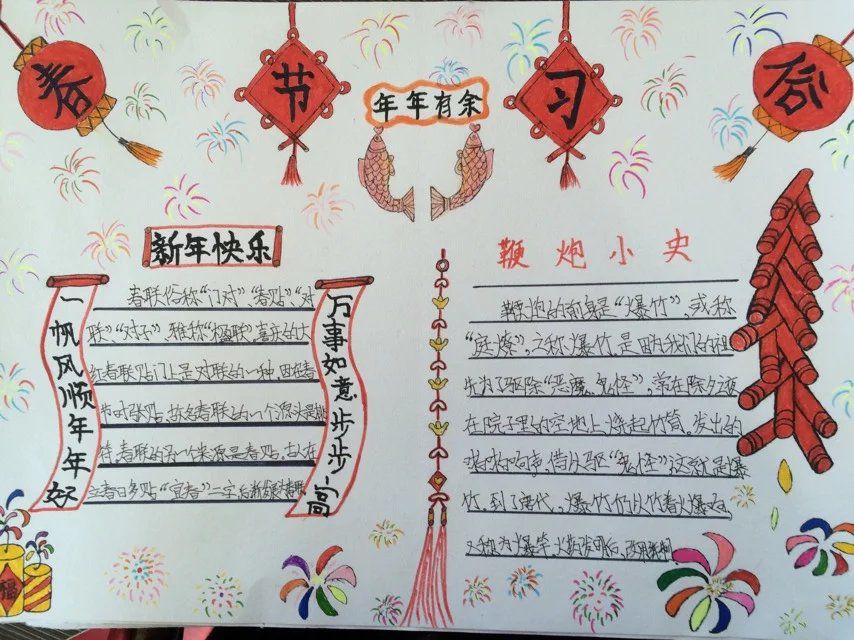 春节习俗
年年有余
新年快乐
一帆风顺年年好
万事如意步步高
春联俗称“门对”、“春贴”、“对
联”、“对子”，雅称“楹联”，喜庆的大
红春联贴门上是对联的一种，因在春
节时张贴，故名春联的一个源头是桃
符，春联的另一个来源是春贴，古人在
立春日多贴“宜春”二字，后
鞭炮小史
鞭炮的前身是“爆竹”，或称
“庭燎”，之称爆竹，是因为我们的祖
先为了驱除“恶魔、鬼怪”，常在除夕之夜
在院子里的空地上，烧起竹筒，发出的
响声，借此驱“鬼怪”这就是爆
竹，到了唐代，爆竹仍以竹着火爆
又称为爆竿，火药发明后，改用
福